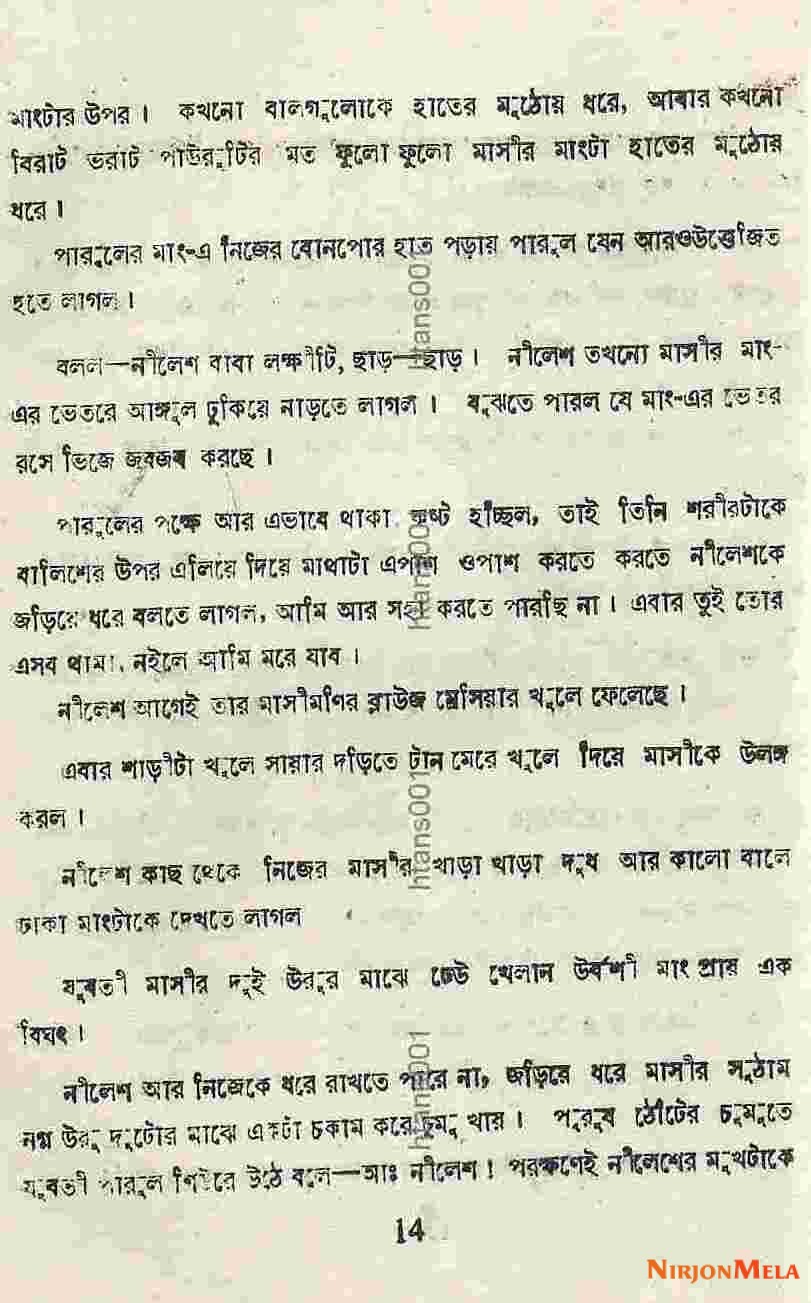 মাংটার উপর। কখনো বালগুলোকে হাতের মুঠোয় ধরে, আবার কখনো
বিরাট ভরাট পাউরুটির মত ফুলো ফুলো মাসীর মাংটা হাতের মুঠোর
ধরে।
পারুলের মাং-এ নিজের বোনপোর হাত পড়ায় পারুল যেন আরওউত্তেজিত
হতে লাগল।
বলল—নীলেশ বাবা লক্ষীটি, ছাড়—ছাড়। নীলেশ তখনো মাসীর মাং-
এর ভেতরে আঙ্গুল ঢুকিয়ে নাড়তে লাগল। বুঝতে পারল যে মাং-এর ভেতর
রসে ভিজে জবজব করছে।
পারুলের পক্ষে আর এভাবে থাকা কষ্ট হচ্ছিল, তাই তিনি শরীরটাকে
বালিশের উপর এলিয়ে দিয়ে মাথাটা এপাশ ওপাশ করতে করতে নীলেশকে
জড়িয়ে ধরে বলতে লাগল, আমি আর সহ্য করতে পারছি না। এবার তুই তোর
এসব থামা, নইলে আমি মরে যাব।
নীলেশ আগেই তার মাসীমণির ব্লাউজ ব্রেসিয়ার খুলে ফেলেছে।
এবার শাড়ীটা খুলে সায়ার দড়িতে টান মেরে খুলে দিয়ে মাসীকে উলঙ্গ
করল।
নীলেশ কাছ থেকে নিজের মাসীর খাড়া খাড়া দুধ আর কালো বালে
ঢাকা মাংটাকে দেখতে লাগল
যুবতী মাসীর দুই উরুর মাঝে ঢেউ খেলান উর্বশী মাং প্রায় এক
বিঘৎ।
নীলেশ আর নিজেকে ধরে রাখতে পারে না, জড়িয়ে ধরে মাসীর সুঠাম
নগ্ন উরু দুটোর মাঝে একটা চকাম করে চুমু খায়। পুরুষ ঠোঁটের চুমুতে
যুবতী পারুল শিউরে উঠে বলে—আঃ নীলেশ! পরক্ষণেই নীলেশের মুখটাকে
14
htans001
htans001
htans001
htans001
NIRJONMELA